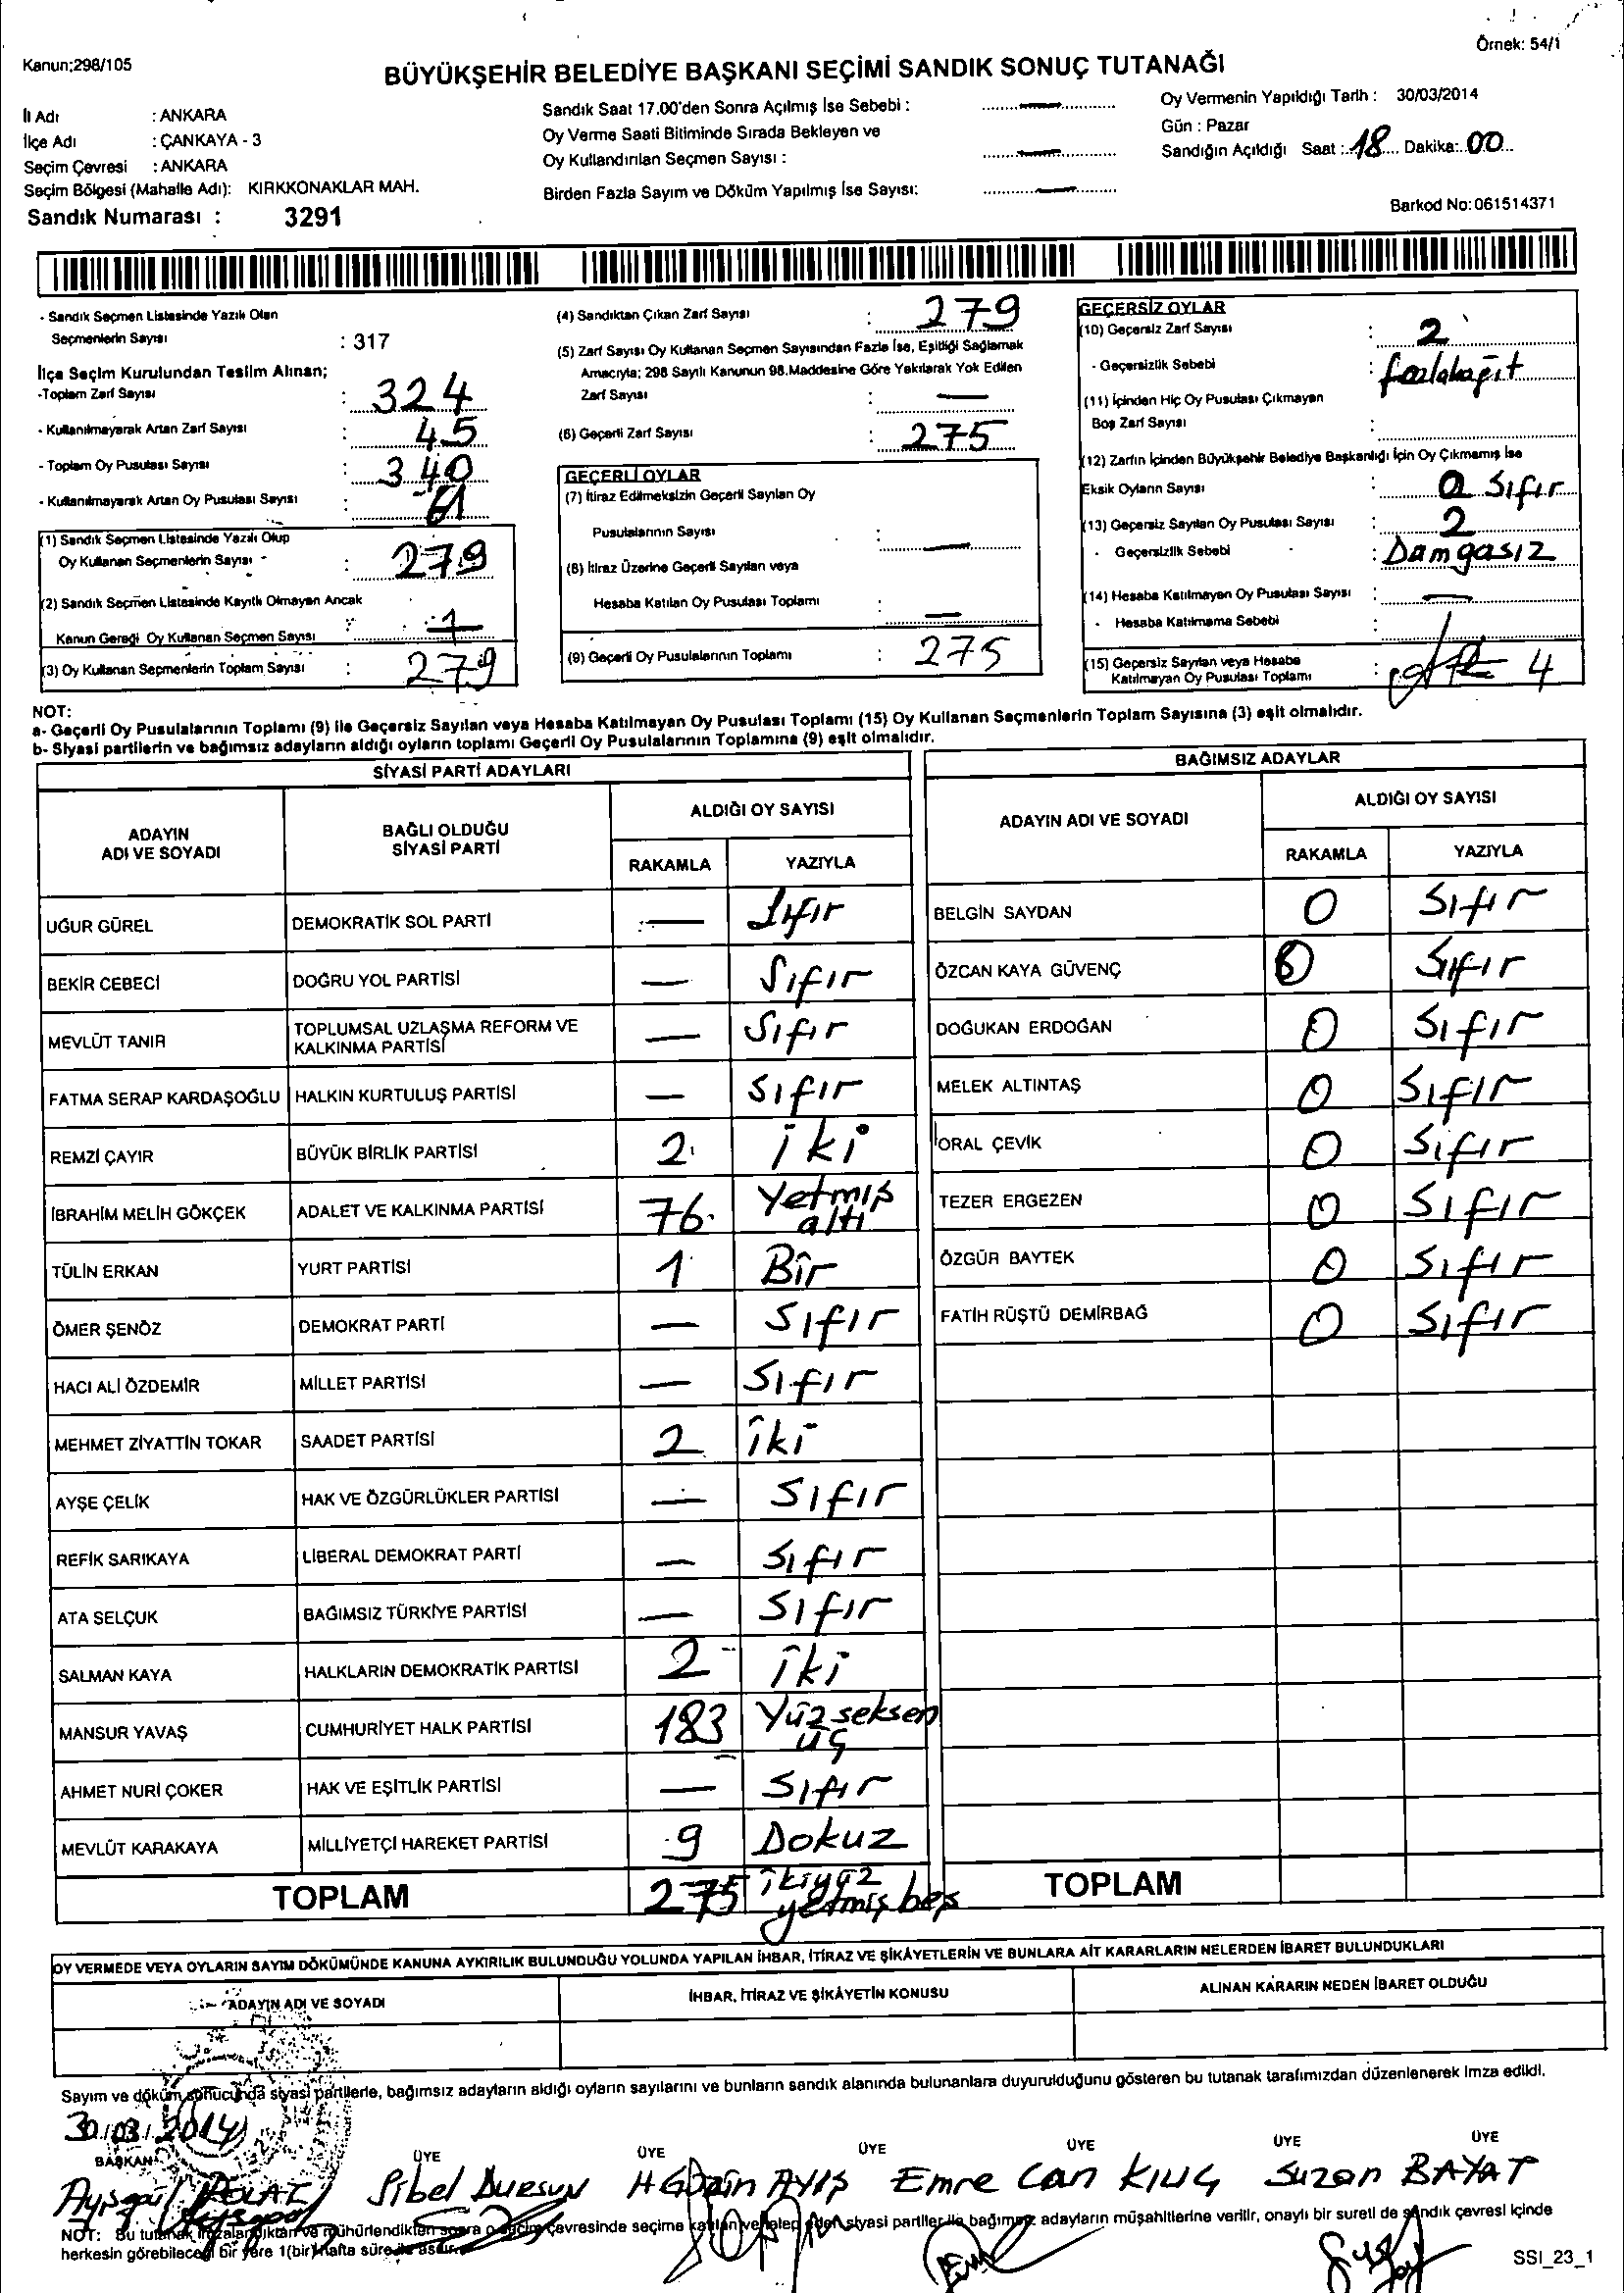 Örnek: 54/1
Kanun;298/105
BÜYÜKŞEHİR BELEDİYE BAŞKANI SEÇİMİ SANDIK SONUÇ TUTANAĞI
İl Adı : ANKARA
İlçe Adı : ÇANKAYA - 3
Seçim Çevresi : ANKARA
Seçim Bölgesi (Mahalle Adı): KIRKKONAKLAR MAH.
Sandık Numarası : 3291
Sandık Saat 17.00'den Sonra Açılmış İse Sebebi : —
Oy Verme Saati Bitiminde Sırada Bekleyen ve
Oy Kullandırılan Seçmen Sayısı : —
Birden Fazla Sayım ve Döküm Yapılmış İse Sayısı: —
Oy Vermenin Yapıldığı Tarih : 30/03/2014
Gün : Pazar
Sandığın Açıldığı Saat : 18 Dakika: 00
Barkod No: 061514371
- Sandık Seçmen Listesinde Yazılı Olan
Seçmenlerin Sayısı : 317
İlçe Seçim Kurulundan Teslim Alınan;
-Toplam Zarf Sayısı : 324
- Kullanılmayarak Artan Zarf Sayısı : 45
- Toplam Oy Pusulası Sayısı : 340
- Kullanılmayarak Artan Oy Pusulası Sayısı : 61
(1) Sandık Seçmen Listesinde Yazılı Olup
Oy Kullanan Seçmenlerin Sayısı : 279
(2) Sandık Seçmen Listesinde Kayıtlı Olmayan Ancak
Kanun Gereği Oy Kullanan Seçmen Sayısı :
(3) Oy Kullanan Seçmenlerin Toplam Sayısı : 279
(4) Sandıktan Çıkan Zarf Sayısı : 279
(5) Zarf Sayısı Oy Kullanan Seçmen Sayısından Fazla İse, Eşitliği Sağlamak
Amacıyla; 298 Sayılı Kanunun 98.Maddesine Göre Yakılarak Yok Edilen
Zarf Sayısı : —
(6) Geçerli Zarf Sayısı : 275
GEÇERLİ OYLAR
(7) İtiraz Edilmeksizin Geçerli Sayılan Oy
Pusulalarının Sayısı : —
(8) İtiraz Üzerine Geçerli Sayılan veya
Hesaba Katılan Oy Pusulası Toplamı : —
(9) Geçerli Oy Pusulalarının Toplamı : 275
GEÇERSİZ OYLAR
(10) Geçersiz Zarf Sayısı : 2
- Geçersizlik Sebebi : fazlakağıt
(11) İçinden Hiç Oy Pusulası Çıkmayan
Boş Zarf Sayısı :
(12) Zarfın İçinden Büyükşehir Belediye Başkanlığı İçin Oy Çıkmamış İse
Eksik Oyların Sayısı : 0 Sıfır
(13) Geçersiz Sayılan Oy Pusulası Sayısı : 2
- Geçersizlik Sebebi : Damgasız
(14) Hesaba Katılmayan Oy Pusulası Sayısı : —
- Hesaba Katılmama Sebebi :
(15) Geçersiz Sayılan veya Hesaba
Katılmayan Oy Pusulası Toplamı : 4
NOT:
a- Geçerli Oy Pusulalarının Toplamı (9) ile Geçersiz Sayılan veya Hesaba Katılmayan Oy Pusulası Toplamı (15) Oy Kullanan Seçmenlerin Toplam Sayısına (3) eşit olmalıdır.
b- Siyasi partilerin ve bağımsız adayların aldığı oyların toplamı Geçerli Oy Pusulalarının Toplamına (9) eşit olmalıdır.
SİYASİ PARTİ ADAYLARI
ADAYIN ADI VE SOYADI
BAĞLI OLDUĞU SİYASİ PARTİ
ALDIĞI OY SAYISI
RAKAMLA YAZIYLA
UĞUR GÜREL DEMOKRATİK SOL PARTİ — Sıfır
BEKİR CEBECİ DOĞRU YOL PARTİSİ — Sıfır
MEVLÜT TANIR TOPLUMSAL UZLAŞMA REFORM VE KALKINMA PARTİSİ — Sıfır
FATMA SERAP KARDAŞOĞLU HALKIN KURTULUŞ PARTİSİ — Sıfır
REMZİ ÇAYIR BÜYÜK BİRLİK PARTİSİ 2 iki
İBRAHİM MELİH GÖKÇEK ADALET VE KALKINMA PARTİSİ 76 Yetmiş altı
TÜLİN ERKAN YURT PARTİSİ 1 Bir
ÖMER ŞENÖZ DEMOKRAT PARTİ — Sıfır
HACI ALİ ÖZDEMİR MİLLET PARTİSİ — Sıfır
MEHMET ZİYATTİN TOKAR SAADET PARTİSİ 2 iki
AYŞE ÇELİK HAK VE ÖZGÜRLÜKLER PARTİSİ — Sıfır
REFİK SARIKAYA LİBERAL DEMOKRAT PARTİ — Sıfır
ATA SELÇUK BAĞIMSIZ TÜRKİYE PARTİSİ — Sıfır
SALMAN KAYA HALKLARIN DEMOKRATİK PARTİSİ 2 iki
MANSUR YAVAŞ CUMHURİYET HALK PARTİSİ 183 Yüz seksen üç
AHMET NURİ ÇOKER HAK VE EŞİTLİK PARTİSİ — Sıfır
MEVLÜT KARAKAYA MİLLİYETÇİ HAREKET PARTİSİ 9 Dokuz
TOPLAM 275 ikiyüz yetmiş beş
BAĞIMSIZ ADAYLAR
ADAYIN ADI VE SOYADI
ALDIĞI OY SAYISI
RAKAMLA YAZIYLA
BELGİN SAYDAN 0 Sıfır
ÖZCAN KAYA GÜVENÇ 0 Sıfır
DOĞUKAN ERDOĞAN 0 Sıfır
MELEK ALTINTAŞ 0 Sıfır
ORAL ÇEVİK 0 Sıfır
TEZER ERGEZEN 0 Sıfır
ÖZGÜR BAYTEK 0 Sıfır
FATİH RÜŞTÜ DEMİRBAĞ 0 Sıfır
TOPLAM
OY VERMEDE VEYA OYLARIN SAYIM DÖKÜMÜNDE KANUNA AYKIRILIK BULUNDUĞU YOLUNDA YAPILAN İHBAR, İTİRAZ VE ŞİKÂYETLERİN VE BUNLARA AİT KARARLARIN NELERDEN İBARET BULUNDUKLARI
ADAYIN ADI VE SOYADI
İHBAR, İTİRAZ VE ŞİKÂYETİN KONUSU
ALINAN KARARIN NEDEN İBARET OLDUĞU
Sayım ve döküm sonucunda siyasi partilerle, bağımsız adayların aldığı oyların sayılarını ve bunların sandık alanında bulunanlara duyurulduğunu gösteren bu tutanak tarafımızdan düzenlenerek imza edildi.
30/03/2014
BAŞKAN ÜYE ÜYE ÜYE ÜYE ÜYE ÜYE
Ayşegül POLAT Sibel Dursun H Gözin AYIŞ Emre Can KILIÇ Suzan BAYAT
NOT: Bu tutanak imzalandıktan ve mühürlendikten sonra o seçim çevresinde seçime katılan ve talep eden siyasi partiler ile bağımsız adayların müşahitlerine verilir, onaylı bir sureti de sandık çevresi içinde
herkesin görebileceği bir yere 1(bir) hafta süre ile asılır.
SSI_23_1